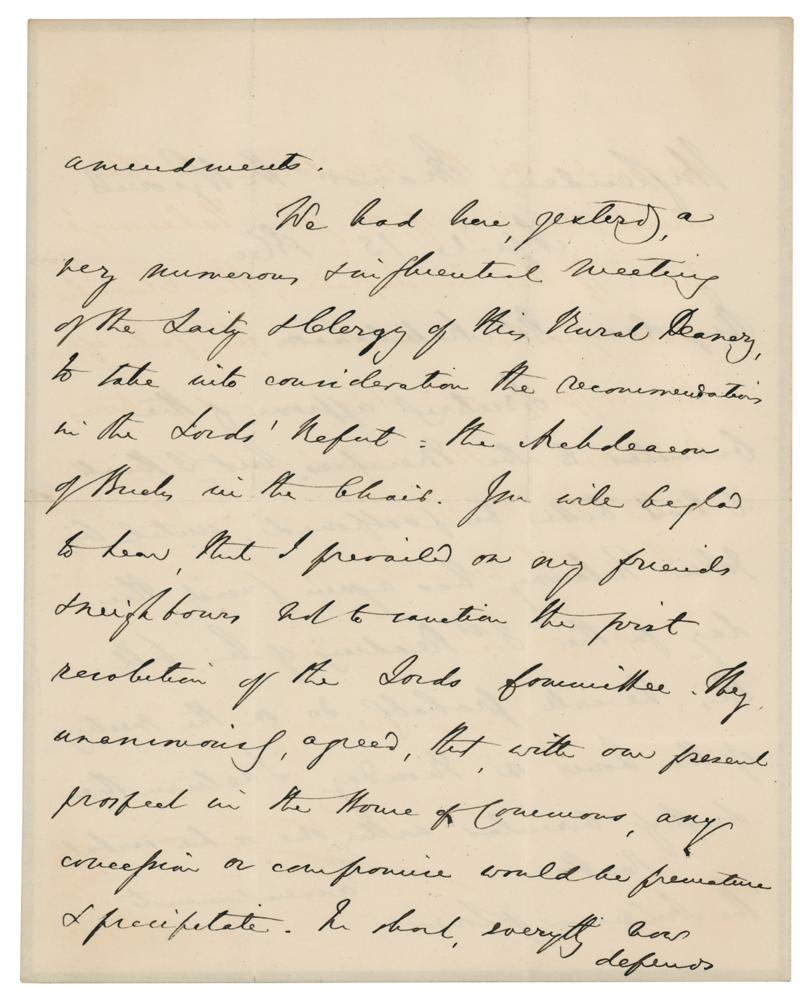 amendments.
We had here, yesterdy, a
very numerous & influential meeting
of the Laity & Clergy of this Rural Deanery,
to take into consideration the recommendations
in the Lords' Report: the Archdeacon
of Bucks in the Chair. You will be glad
to hear, that I prevailed on my friends
& neighbours not to sanction the first
resolution of the Lords Committee. They,
unanimously, agreed, that, with our present
prospect in the House of Commons, any
concession or compromise would be premature
& precipitate. In short, everythg now
depends